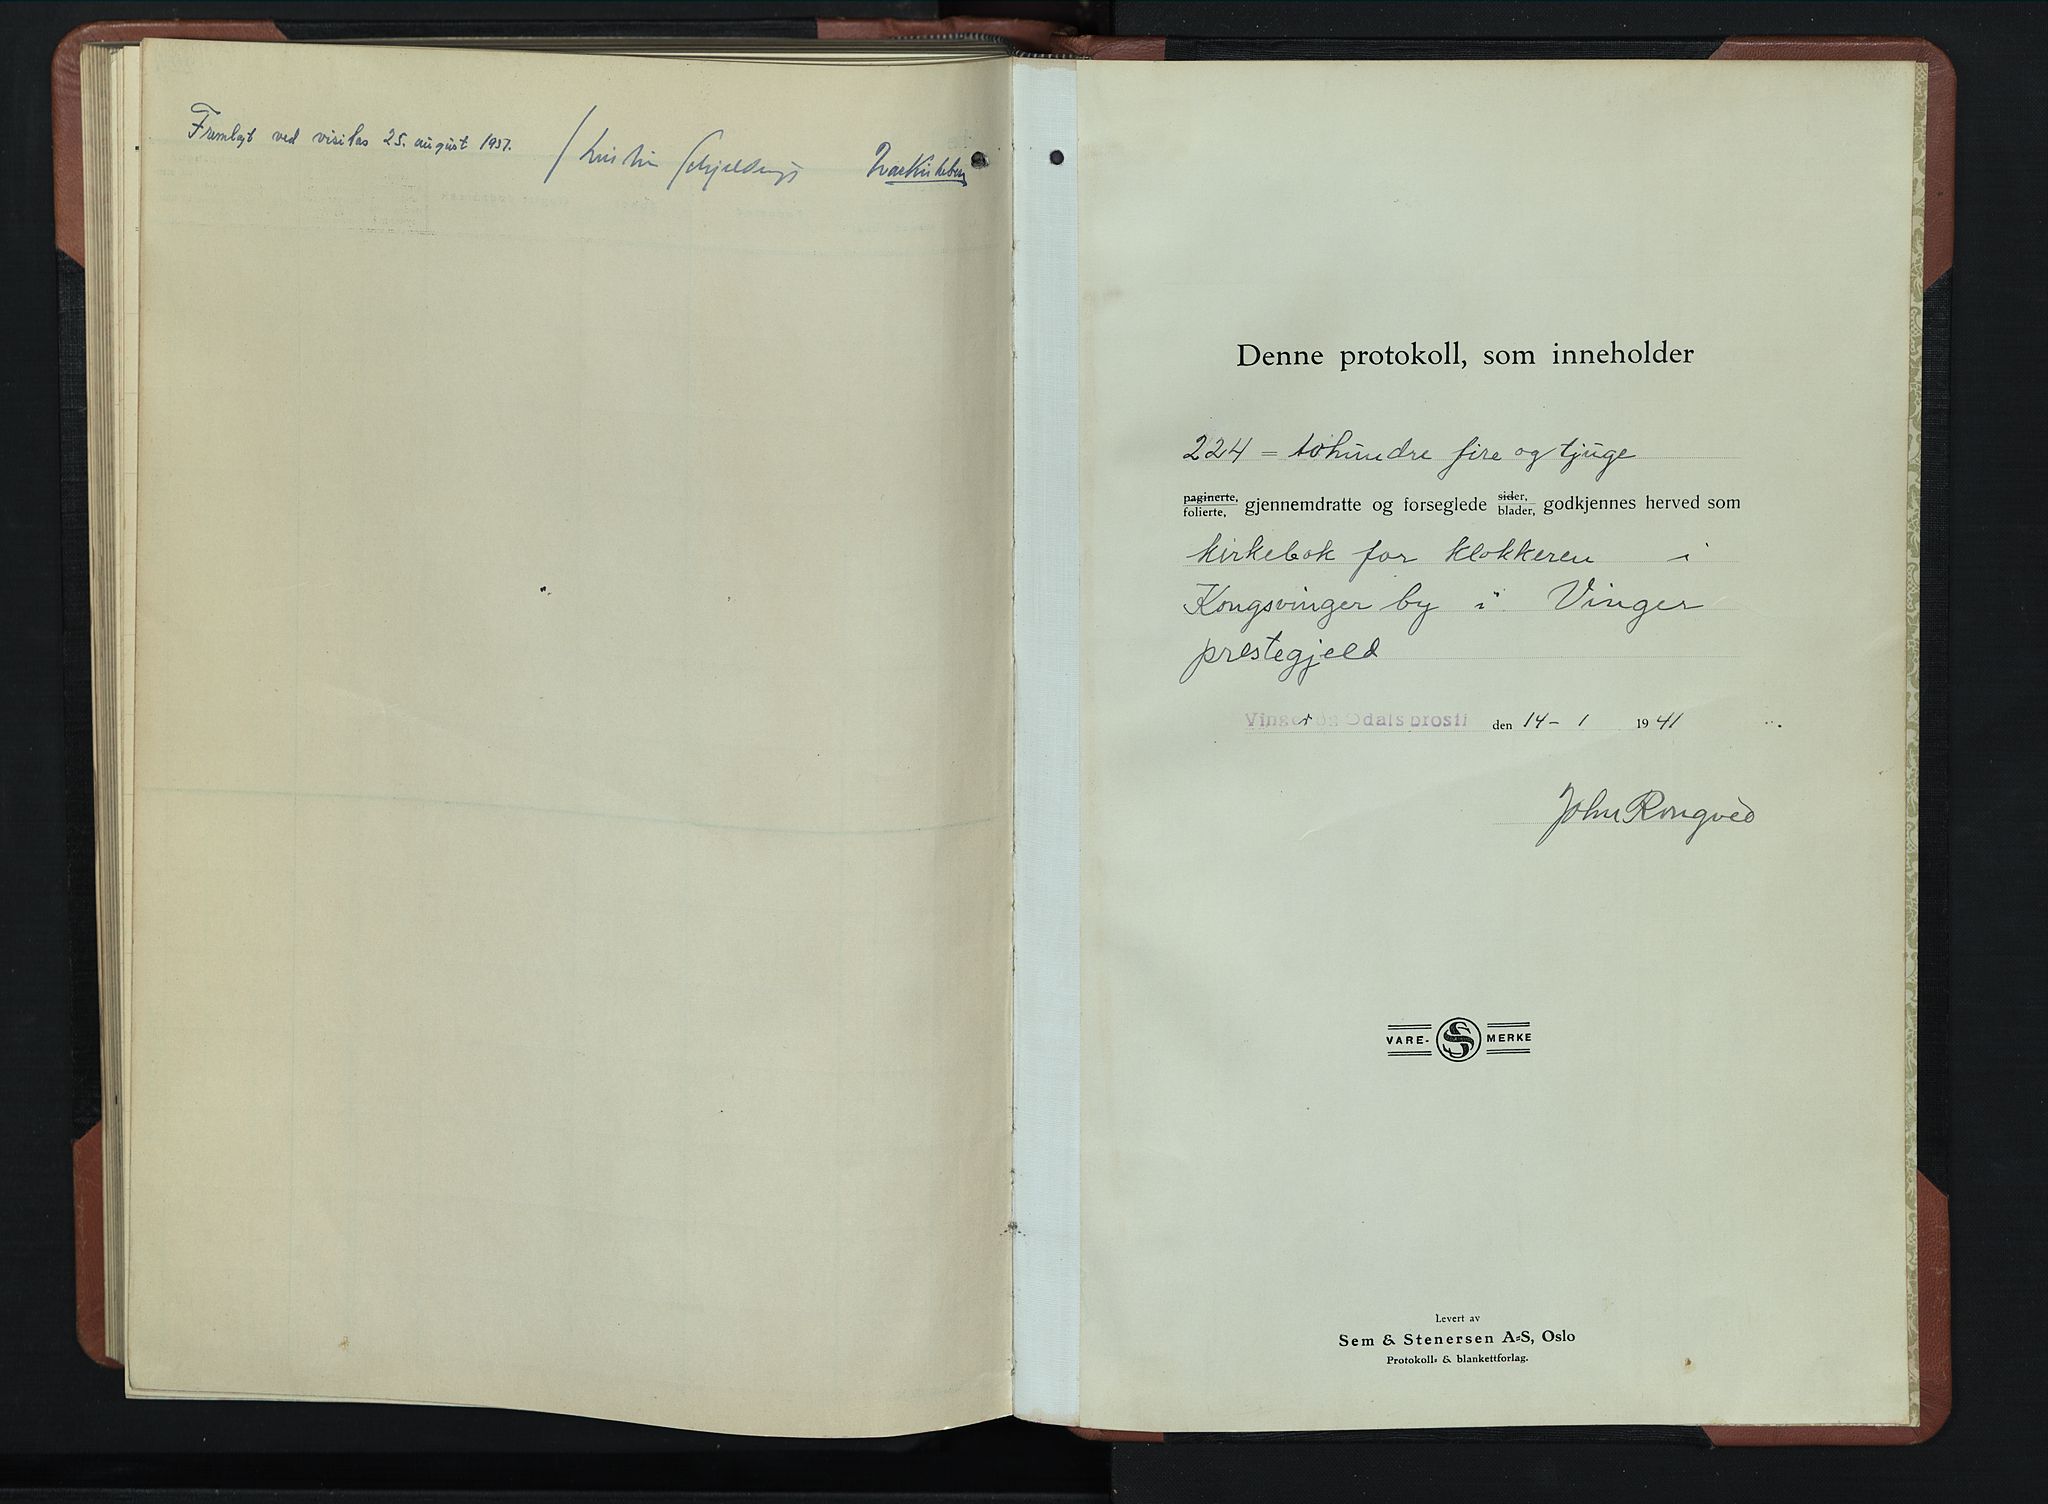 Fremlagt ved visitas 25. august 1957.
Kristian Schjelderup
Ivar Kirkeberg
Denne protokoll, som inneholder
224 = tohundre fire og tjuge
paginerte, folierte, gjennemdratte og forseglede sider, blader, godkjennes herved som
kirkebok for klokkeren i
Kongsvinger by i Vinger
prestegjeld
Vinger og Odals prosti den 14 - 1 1941
John Rongved
VARE- S MERKE
Levert av
Sem & Stenersen A-S, Oslo
Protokoll- & blankettforlag.